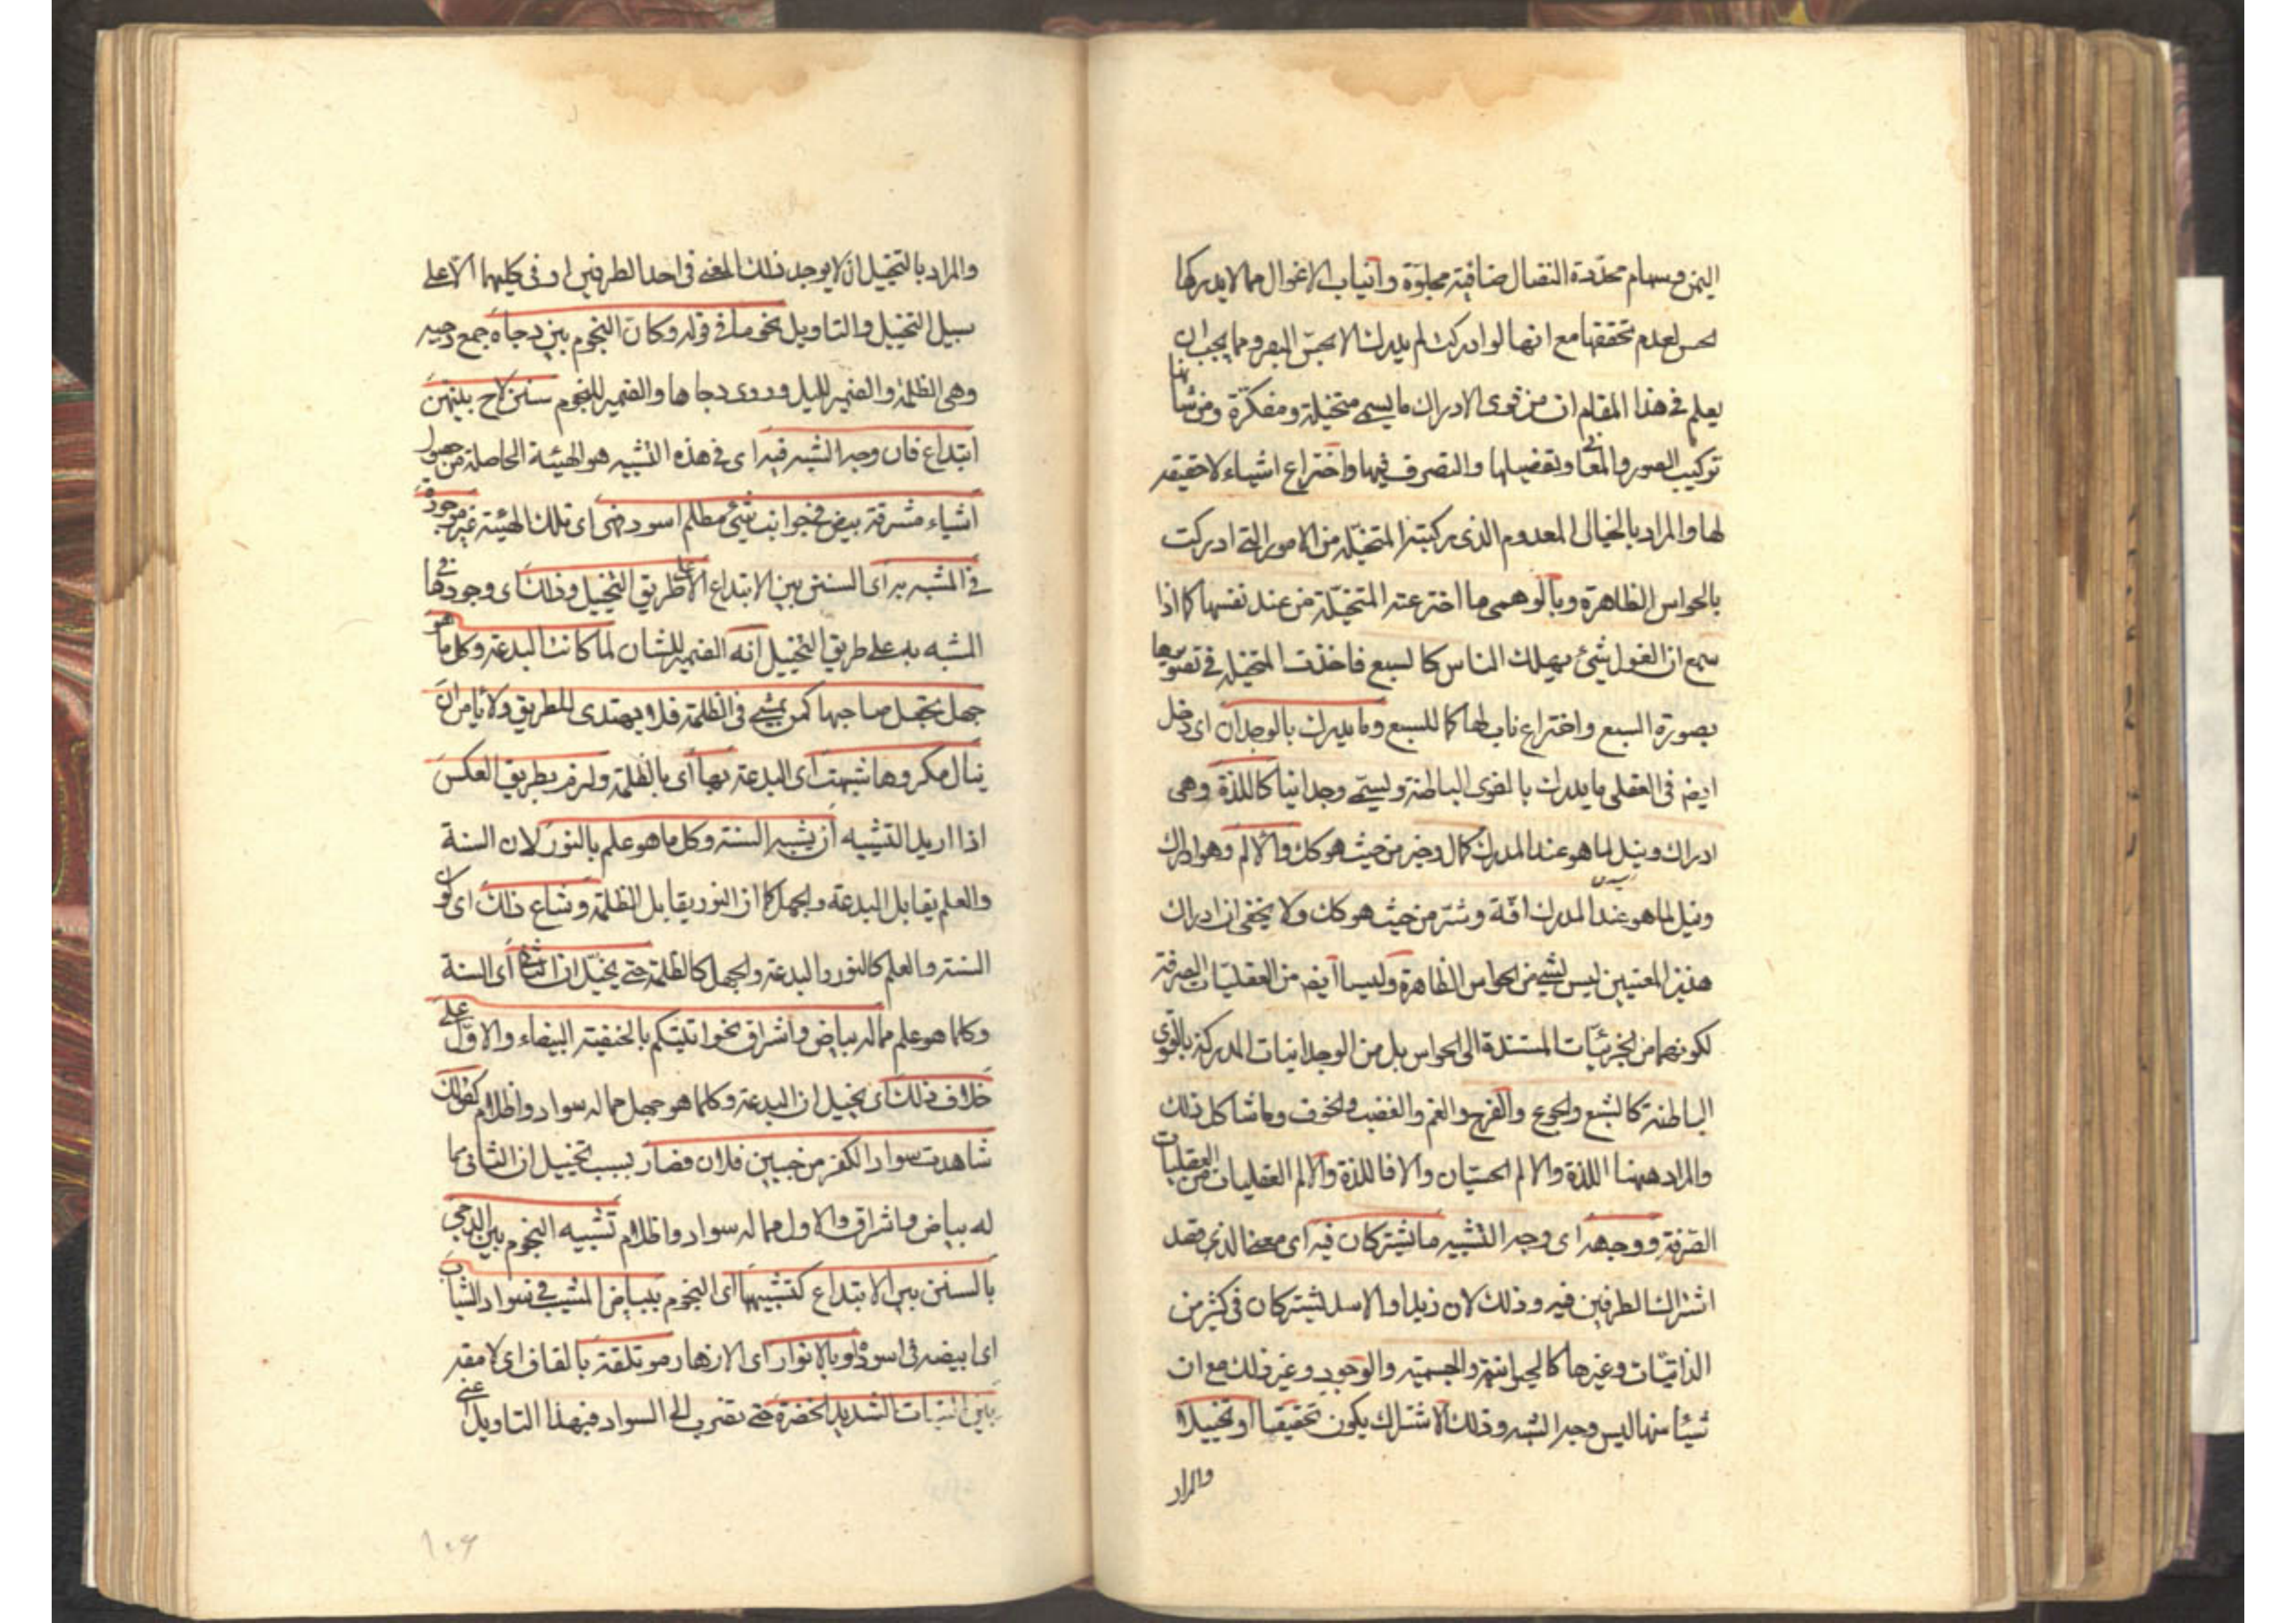 اليمن وسهام محددة النصال صافية مجلوة وانياب الاغوال مما لا يدركها
الحس لعدم تحققها مع انها لو ادركت لم يدرك الا بحس البصر ومما يجب ان
يعلم في هذا المقام ان من قوى الادراك ما يسمى متخيلة ومفكرة ومن شانها
تركيب الصور والمعاني وتفصيلها والتصرف فيها واختراع اشياء لا حقيقة
لها والمراد بالخيالى المعدوم الذى ركبته المتخيلة من الامور التى ادركت
بالحواس الظاهرة وبالوهمى ما اخترعته المتخيلة من عند نفسها كما اذا
سمع ان الغول شئ يهلك الناس كالسبع فاخذت المتخيلة في تصويرها
بصورة السبع واختراع ناب لها كما للسبع وما يدرك بالوجدان اى دخل
ايضا فى العقلى ما يدرك بالقوى الباطنة ويسمى وجدانيا كاللذة وهى
ادراك ونيل لما هو عند المدرك كمال وخير من حيث هو كك والالم وهو ادراك
ونيل لما هو عند المدرك افة وشر من حيث هو كك ولا يخفى ان ادراك
هذين المعنيين ليس بشئ من الحواس الظاهرة وليسا ايضا من العقليات الصرفة
لكونهما من الجزئيات المستندة الى الحواس بل من الوجدانيات المدركة بالقوى
الباطنة كالشبع والجوع والفرح والغم والغضب والخوف وما شاكل ذلك
والمراد ههنا اللذة والالم الحسيان والا فاللذة والالم العقليان من العقليات
الصرفة ووجهه اى وجه التشبيه ما يشتركان فيه اى معنى الذى قصد
اشتراك الطرفين فيه وذلك لان زيدا والاسد يشتركان فى كثير من
الذاتيات وغيرها كالحيوانية والجسمية والوجود وغير ذلك مع ان
شيئا منها ليس وجه الشبه وذلك الاشتراك يكون تحقيقيا او تخييلا
والمراد
والمراد بالتخييل ان لا يوجد ذلك المعنى فى احد الطرفين او فى كليهما الا على
سبيل التخييل والتاويل نحو ما في قوله وكان النجوم بين دجاه جمع دجيه
وهى الظلمة والضمير لليل وروى دجاها والضمير للنجوم سنن لاح بينهن
ابتداع فان وجه الشبه فيه اى فى هذا التشبيه هو الهيئة الحاصلة من حصول
اشياء مشرقة بيض في جوانب شئ مظلم اسود فهى اى تلك الهيئة غير موجودة
في المشبه به اى السنن بين الابتداع الا على طريق التخييل وذلك اى وجودها فى
المشبه به على طريق التخييل انه الضمير للشان لما كانت البدعة وكل ما هو
جهل تجعل صاحبها كمن يمشى فى الظلمة فلا يهتدى للطريق ولا يامن ان
ينال مكروها شبهت اى البدعة بها اى بالظلمة ولزم بطريق العكس
اذا اريد التشبيه ان يشبه السنة وكل ما هو علم بالنور لان السنة
والعلم يقابل البدعة والجهل كما ان النور يقابل الظلمة وشاع ذلك اى كون
السنة والعلم كالنور والبدعة والجهل كالظلمة حتى يخيل ان الثاني اى السنة
وكلما هو علم مما له بياض واشراق نحو اتيتكم بالحنيفية البيضاء والاول على
خلاف ذلك اى يخيل ان البدعة وكلما هو جهل مما له سواد واظلام كقولك
شاهدت سواد الكفر من جبين فلان فصار بسبب تخييل ان الثانى مما
له بياض واشراق والاول مما له سواد واظلام تشبيه النجوم بين الدجى
بالسنن بين الابتداع كتشبيهها اى النجوم ببياض المشيب فى سواد الشباب
اى ابيضه فى اسوده او بالانوار اى الازهار موتلقة بالقاف اى لامعة
بين النبات الشديد الخضرة حتى تضرب الى السواد فبهذا التاويل اعنى
١٠٦